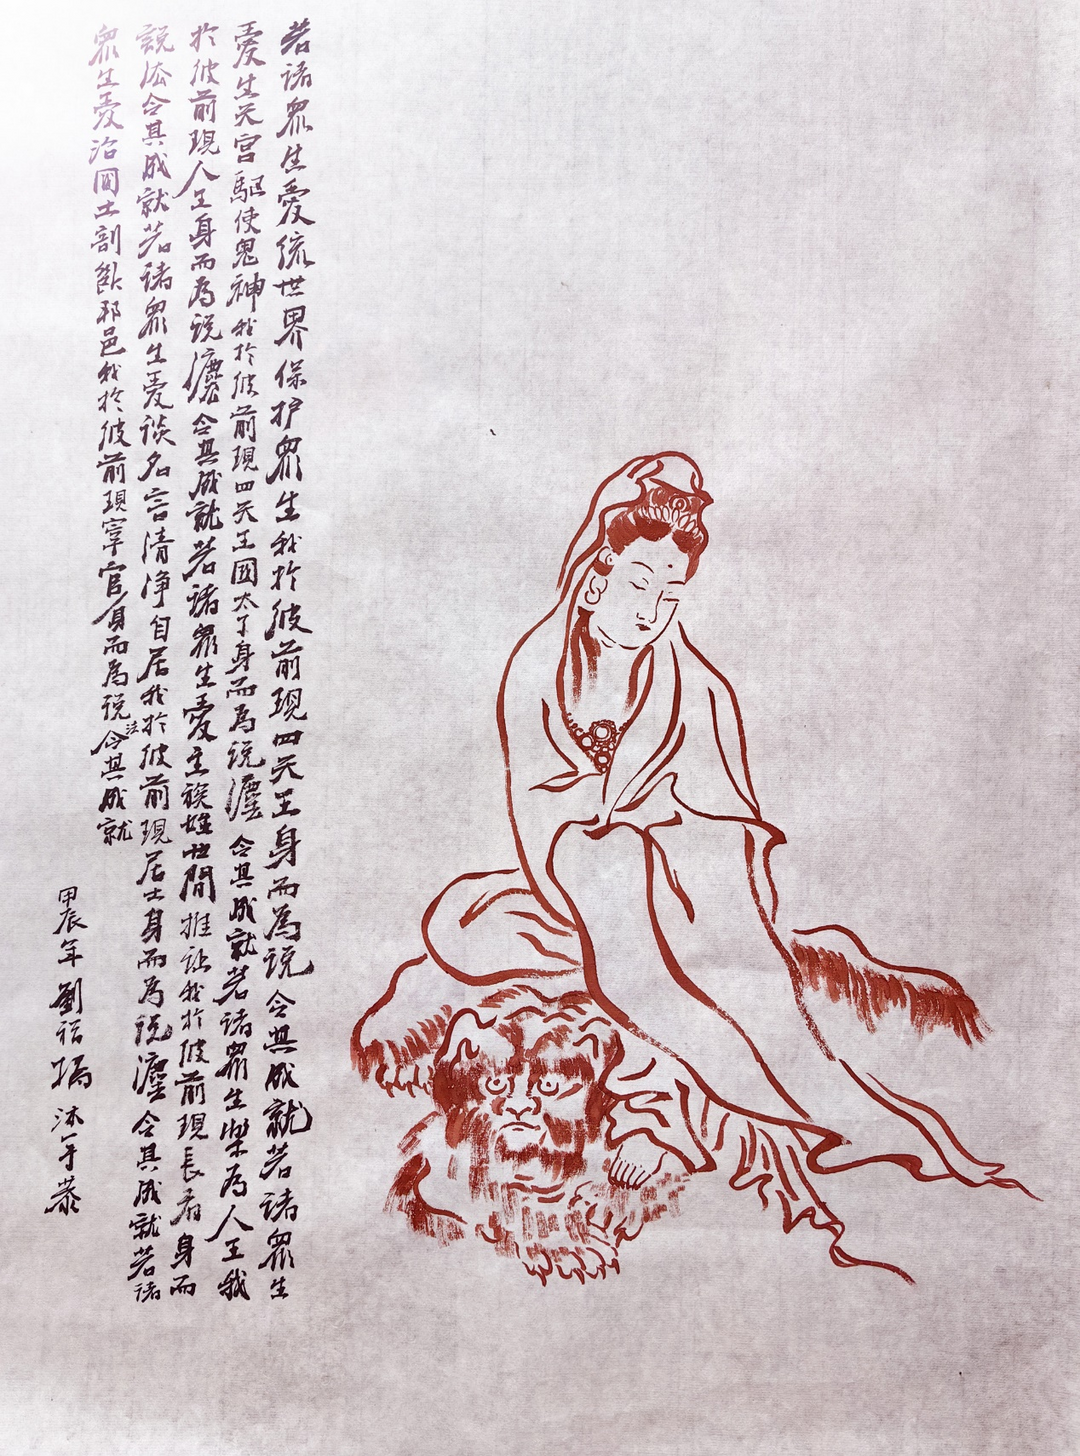 若诸众生爱统世界保护众生我於彼前現四天王身而為说令其成就若诸众生
爱生天宫驅使鬼神我於彼前現四天王國太子身而為说灋令其成就若诸众生樂為人王我
於彼前現人王身而為说灋令其成就若诸众生爱主族姓世間推让我於彼前現長者身而
説法令其成就若诸众生爱谈名言清净自居我於彼前現居士身而為说灋令其成就若诸
众生爱治國土剖斷邦邑我於彼前現宰官身而為说法令其成就
甲辰年劉
沐手恭